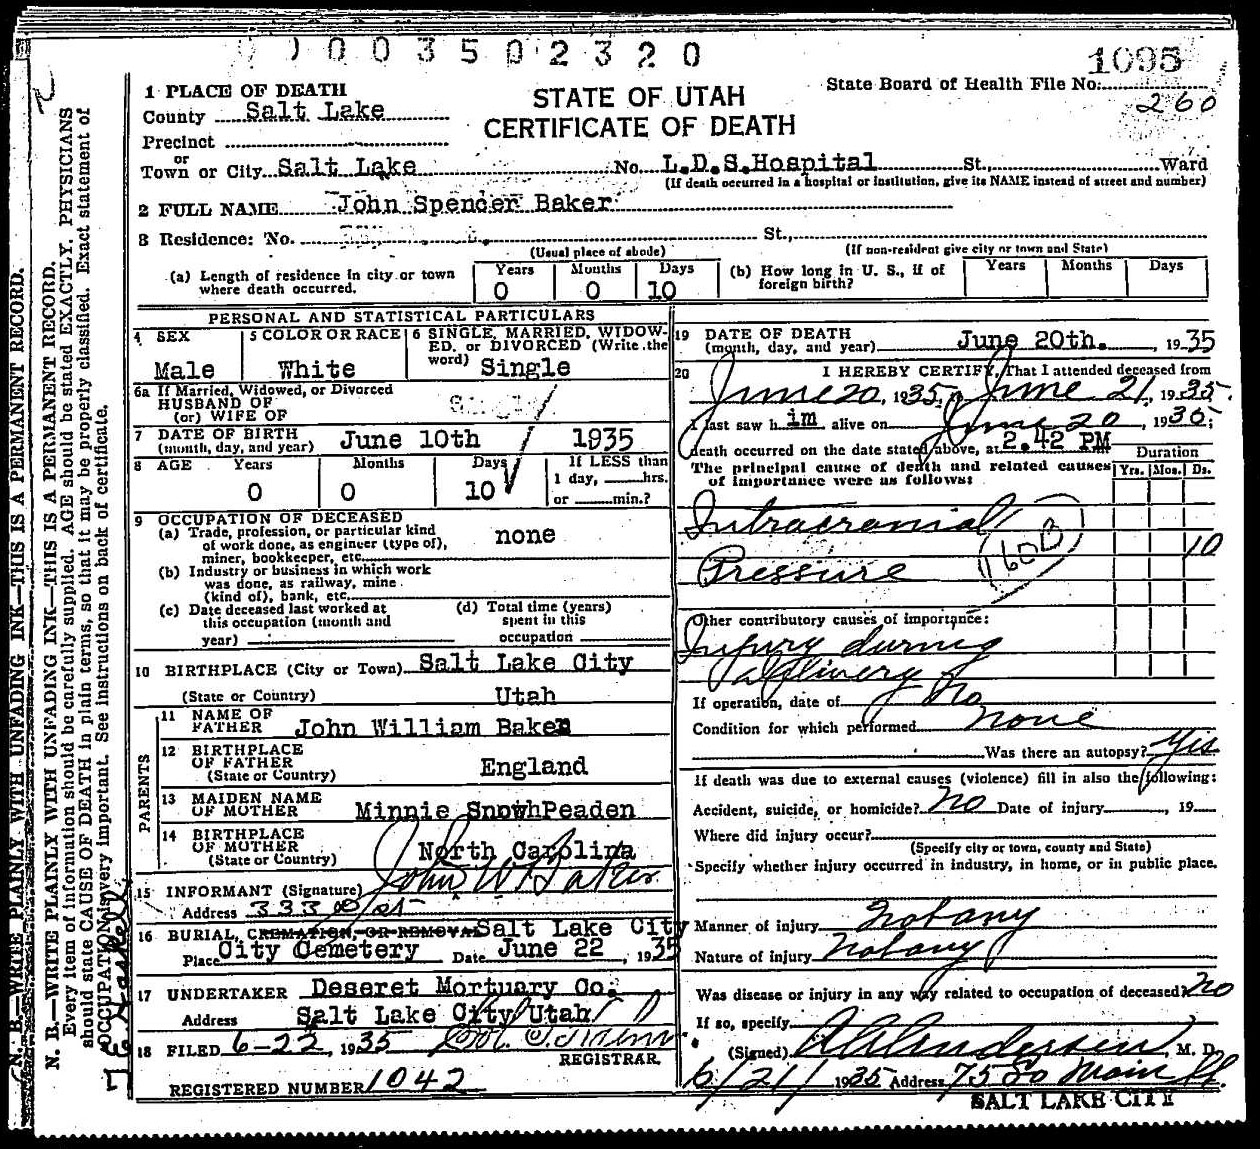 0 0 0 3 5 0 2 3 2 0
1095
State Board of Health File No.
260
STATE OF UTAH
CERTIFICATE OF DEATH
1 PLACE OF DEATH
County Salt Lake
Precinct
or
Town or City Salt Lake No. L.D.S. Hospital St., Ward
(If death occurred in a hospital or institution, give its NAME instead of street and number)
2 FULL NAME John Spencer Baker
3 Residence: No. St.,
(Usual place of abode) (If non-resident give city or town and State)
(a) Length of residence in city or town where death occurred. Years 0 Months 0 Days 10
(b) How long in U. S., if of foreign birth? Years Months Days
PERSONAL AND STATISTICAL PARTICULARS
4 SEX Male
5 COLOR OR RACE White
6 SINGLE, MARRIED, WIDOWED, or DIVORCED (Write the word) Single
6a If Married, Widowed, or Divorced
HUSBAND OF
(or) WIFE OF
7 DATE OF BIRTH June 10th 1935
(month, day, and year)
8 AGE Years 0 Months 0 Days 10 If LESS than
1 day, hrs.
or min.?
9 OCCUPATION OF DECEASED
(a) Trade, profession, or particular kind
of work done, as engineer (type of),
miner, bookkeeper, etc. none
(b) Industry or business in which work
was done, as railway, mine
(kind of), bank, etc.
(c) Date deceased last worked at
this occupation (month and
year)
(d) Total time (years)
spent in this
occupation
10 BIRTHPLACE (City or Town) Salt Lake City
(State or Country) Utah
PARENTS
11 NAME OF
FATHER John William Baker
12 BIRTHPLACE
OF FATHER
(State or Country) England
13 MAIDEN NAME
OF MOTHER Minnie Snow Peaden
14 BIRTHPLACE
OF MOTHER
(State or Country) North Carolina
15 INFORMANT (Signature) John W Baker
Address 333
16 BURIAL, CREMATION, OR REMOVAL Salt Lake City
Place City Cemetery Date June 22, 1935
17 UNDERTAKER Deseret Mortuary Co.
Address Salt Lake City Utah
18 FILED 6-22, 1935
REGISTRAR
REGISTERED NUMBER 1042
19 DATE OF DEATH
(month, day, and year) June 20th. , 1935
20 I HEREBY CERTIFY, That I attended deceased from
June 20, 1935, to June 21, 1935.
I last saw him alive on June 20, 1935;
death occurred on the date stated above, at 2.42 PM
The principal cause of death and related causes
of importance were as follows:
Duration
Yrs. Mos. Ds.
Intracranial
Pressure 10
160B
Other contributory causes of importance:
Injury during
delivery
If operation, date of no
Condition for which performed none
Was there an autopsy? Yes
If death was due to external causes (violence) fill in also the following:
Accident, suicide, or homicide? No Date of injury , 19
Where did injury occur?
(Specify city or town, county and State)
Specify whether injury occurred in industry, in home, or in public place.
Manner of injury Not any
Nature of injury Not any
Was disease or injury in any way related to occupation of deceased? No
If so, specify
(Signed) Andersen, M. D.
6/21/ 1935 Address 75 So Main St.
SALT LAKE CITY
N. B.—WRITE PLAINLY WITH UNFADING INK—THIS IS A PERMANENT RECORD.
N. B.—WRITE PLAINLY WITH UNFADING INK—THIS IS A PERMANENT RECORD.
Every item of information should be carefully supplied. AGE should be stated EXACTLY. PHYSICIANS
should state CAUSE OF DEATH in plain terms, so that it may be properly classified. Exact statement of
OCCUPATION is very important. See instructions on back of certificate.